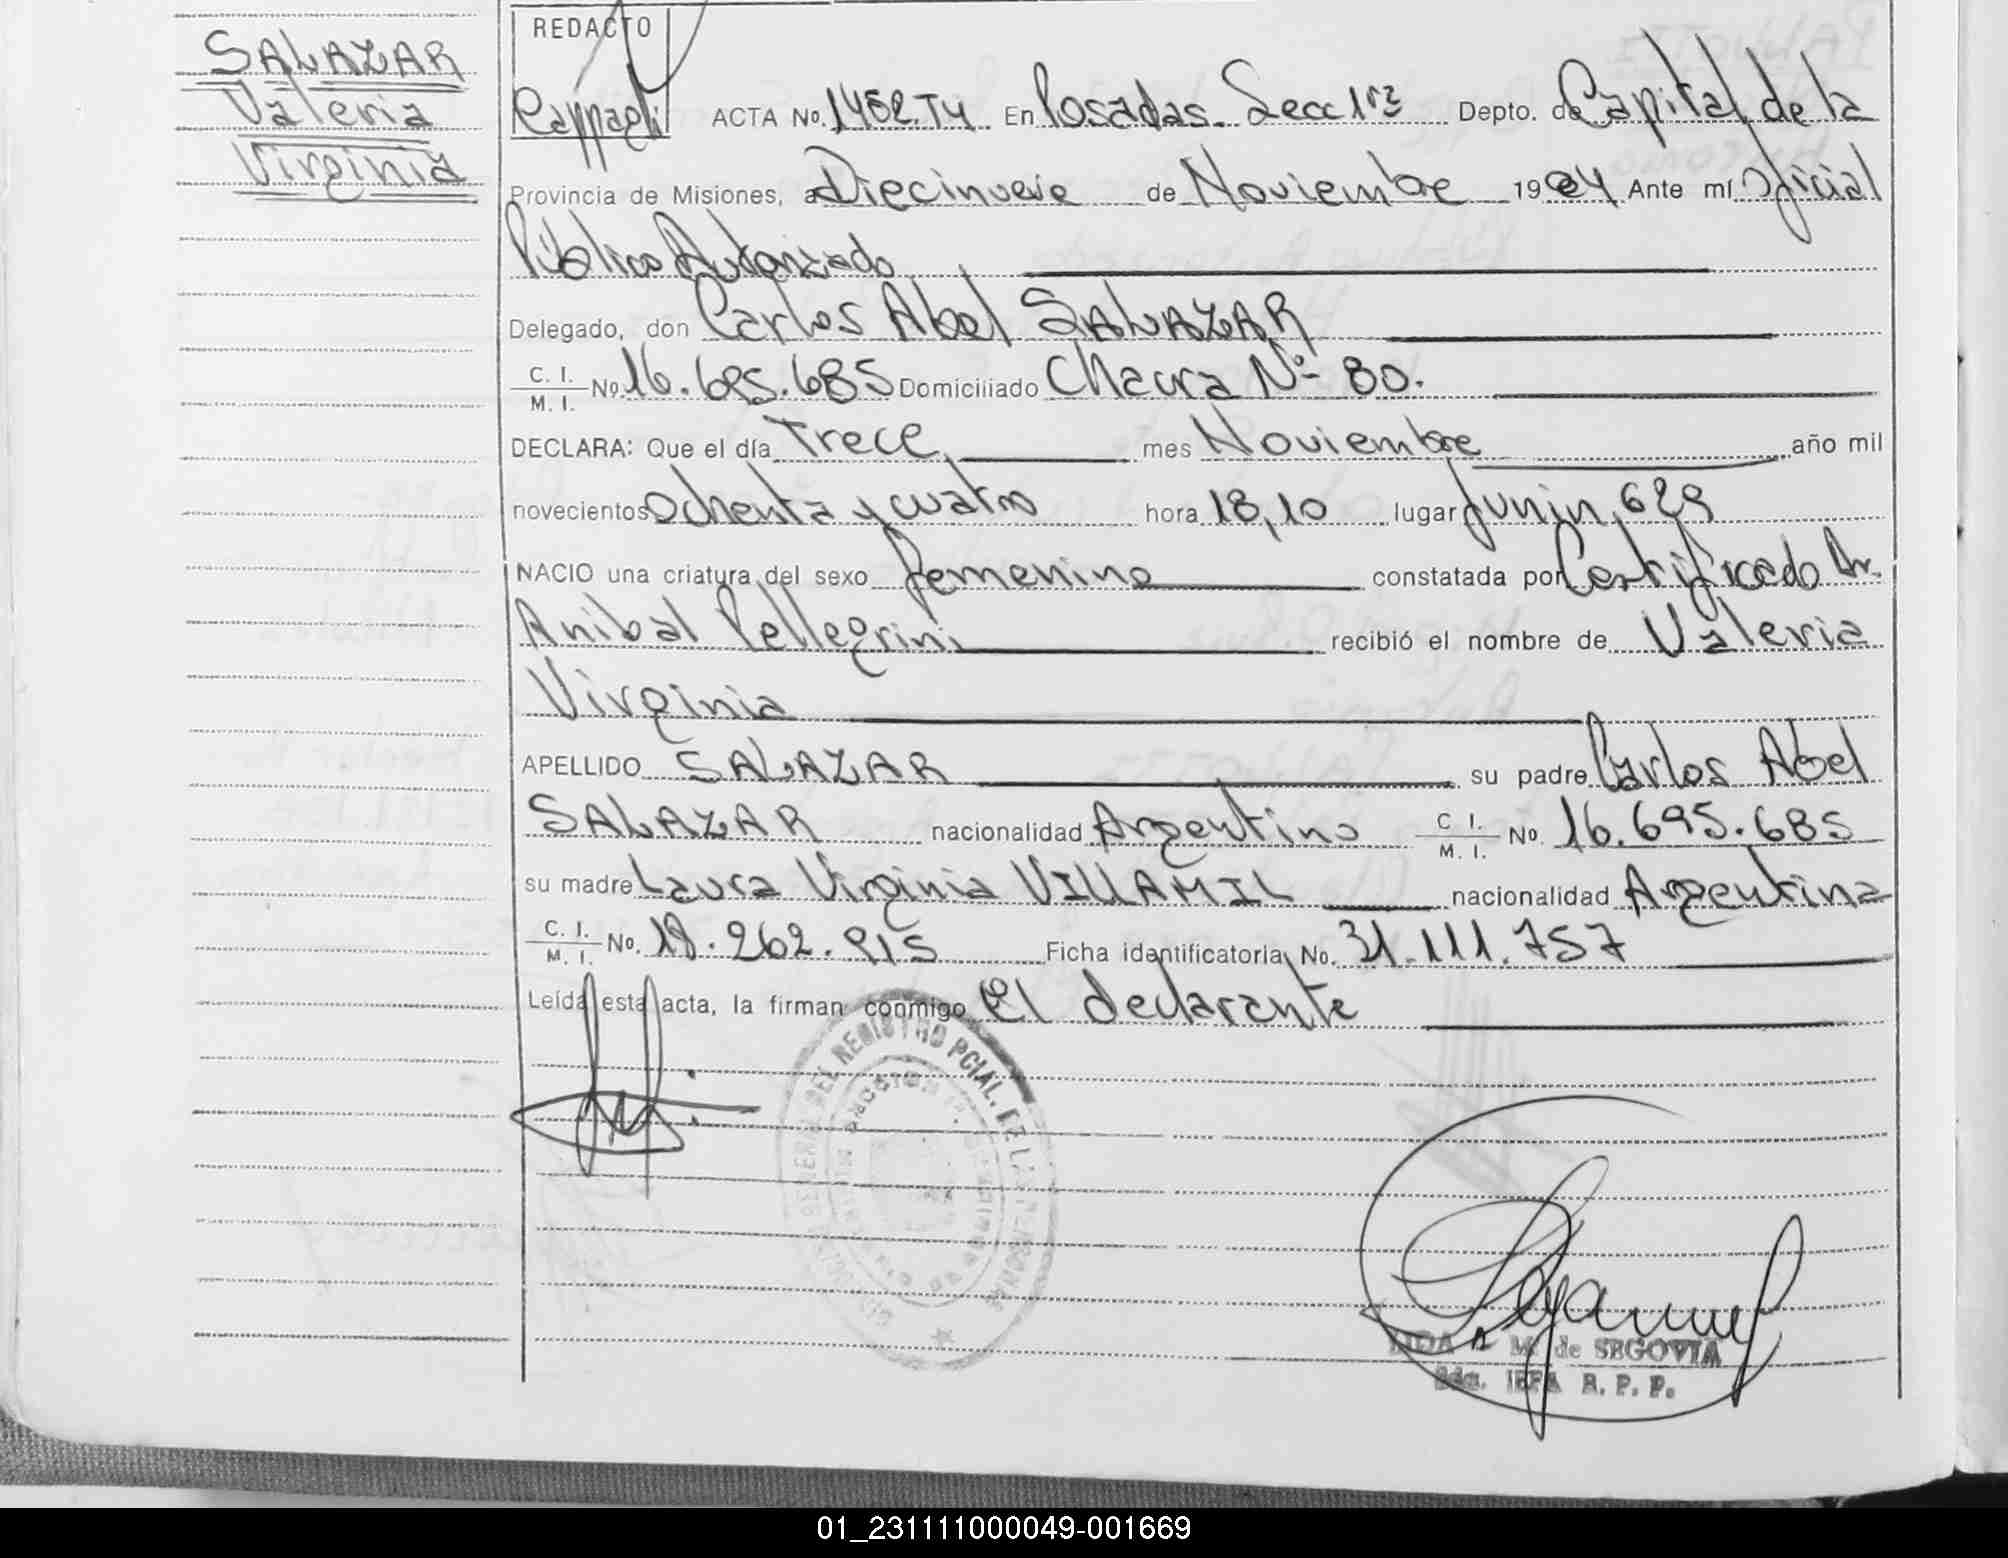 SALAZAR
Valeria
Virginia
REDACTO
ACTA No. 1452.T4 En Posadas. Secc 1ra Depto. de Capital de la
Provincia de Misiones, a Diecinueve de Noviembre 1984 Ante mí Oficial
Público Autorizado
Delegado, don Carlos Abel SALAZAR
C. I. / M. I. No. 16.695.685 Domiciliado Chacra Nº 80.
DECLARA: Que el día Trece mes Noviembre año mil
novecientos ochenta y cuatro hora 18,10 lugar Junin 629
NACIO una criatura del sexo femenino constatada por Certificado Dr.
Anibal Pellegrini recibió el nombre de Valeria
Virginia
APELLIDO SALAZAR su padre Carlos Abel
SALAZAR nacionalidad Argentino C. I. / M. I. No. 16.695.685
su madre Laura Virginia VILLAMIL nacionalidad Argentina
C. I. / M. I. No. 18.262.915 Ficha identificatoria No. 31.111.757
Leída esta acta, la firman conmigo El declarante
DEL REGISTRO PCIAL. DE LAS PERSONAS
M. de SEGOVIA
R. P. P.
01_231111000049-001669